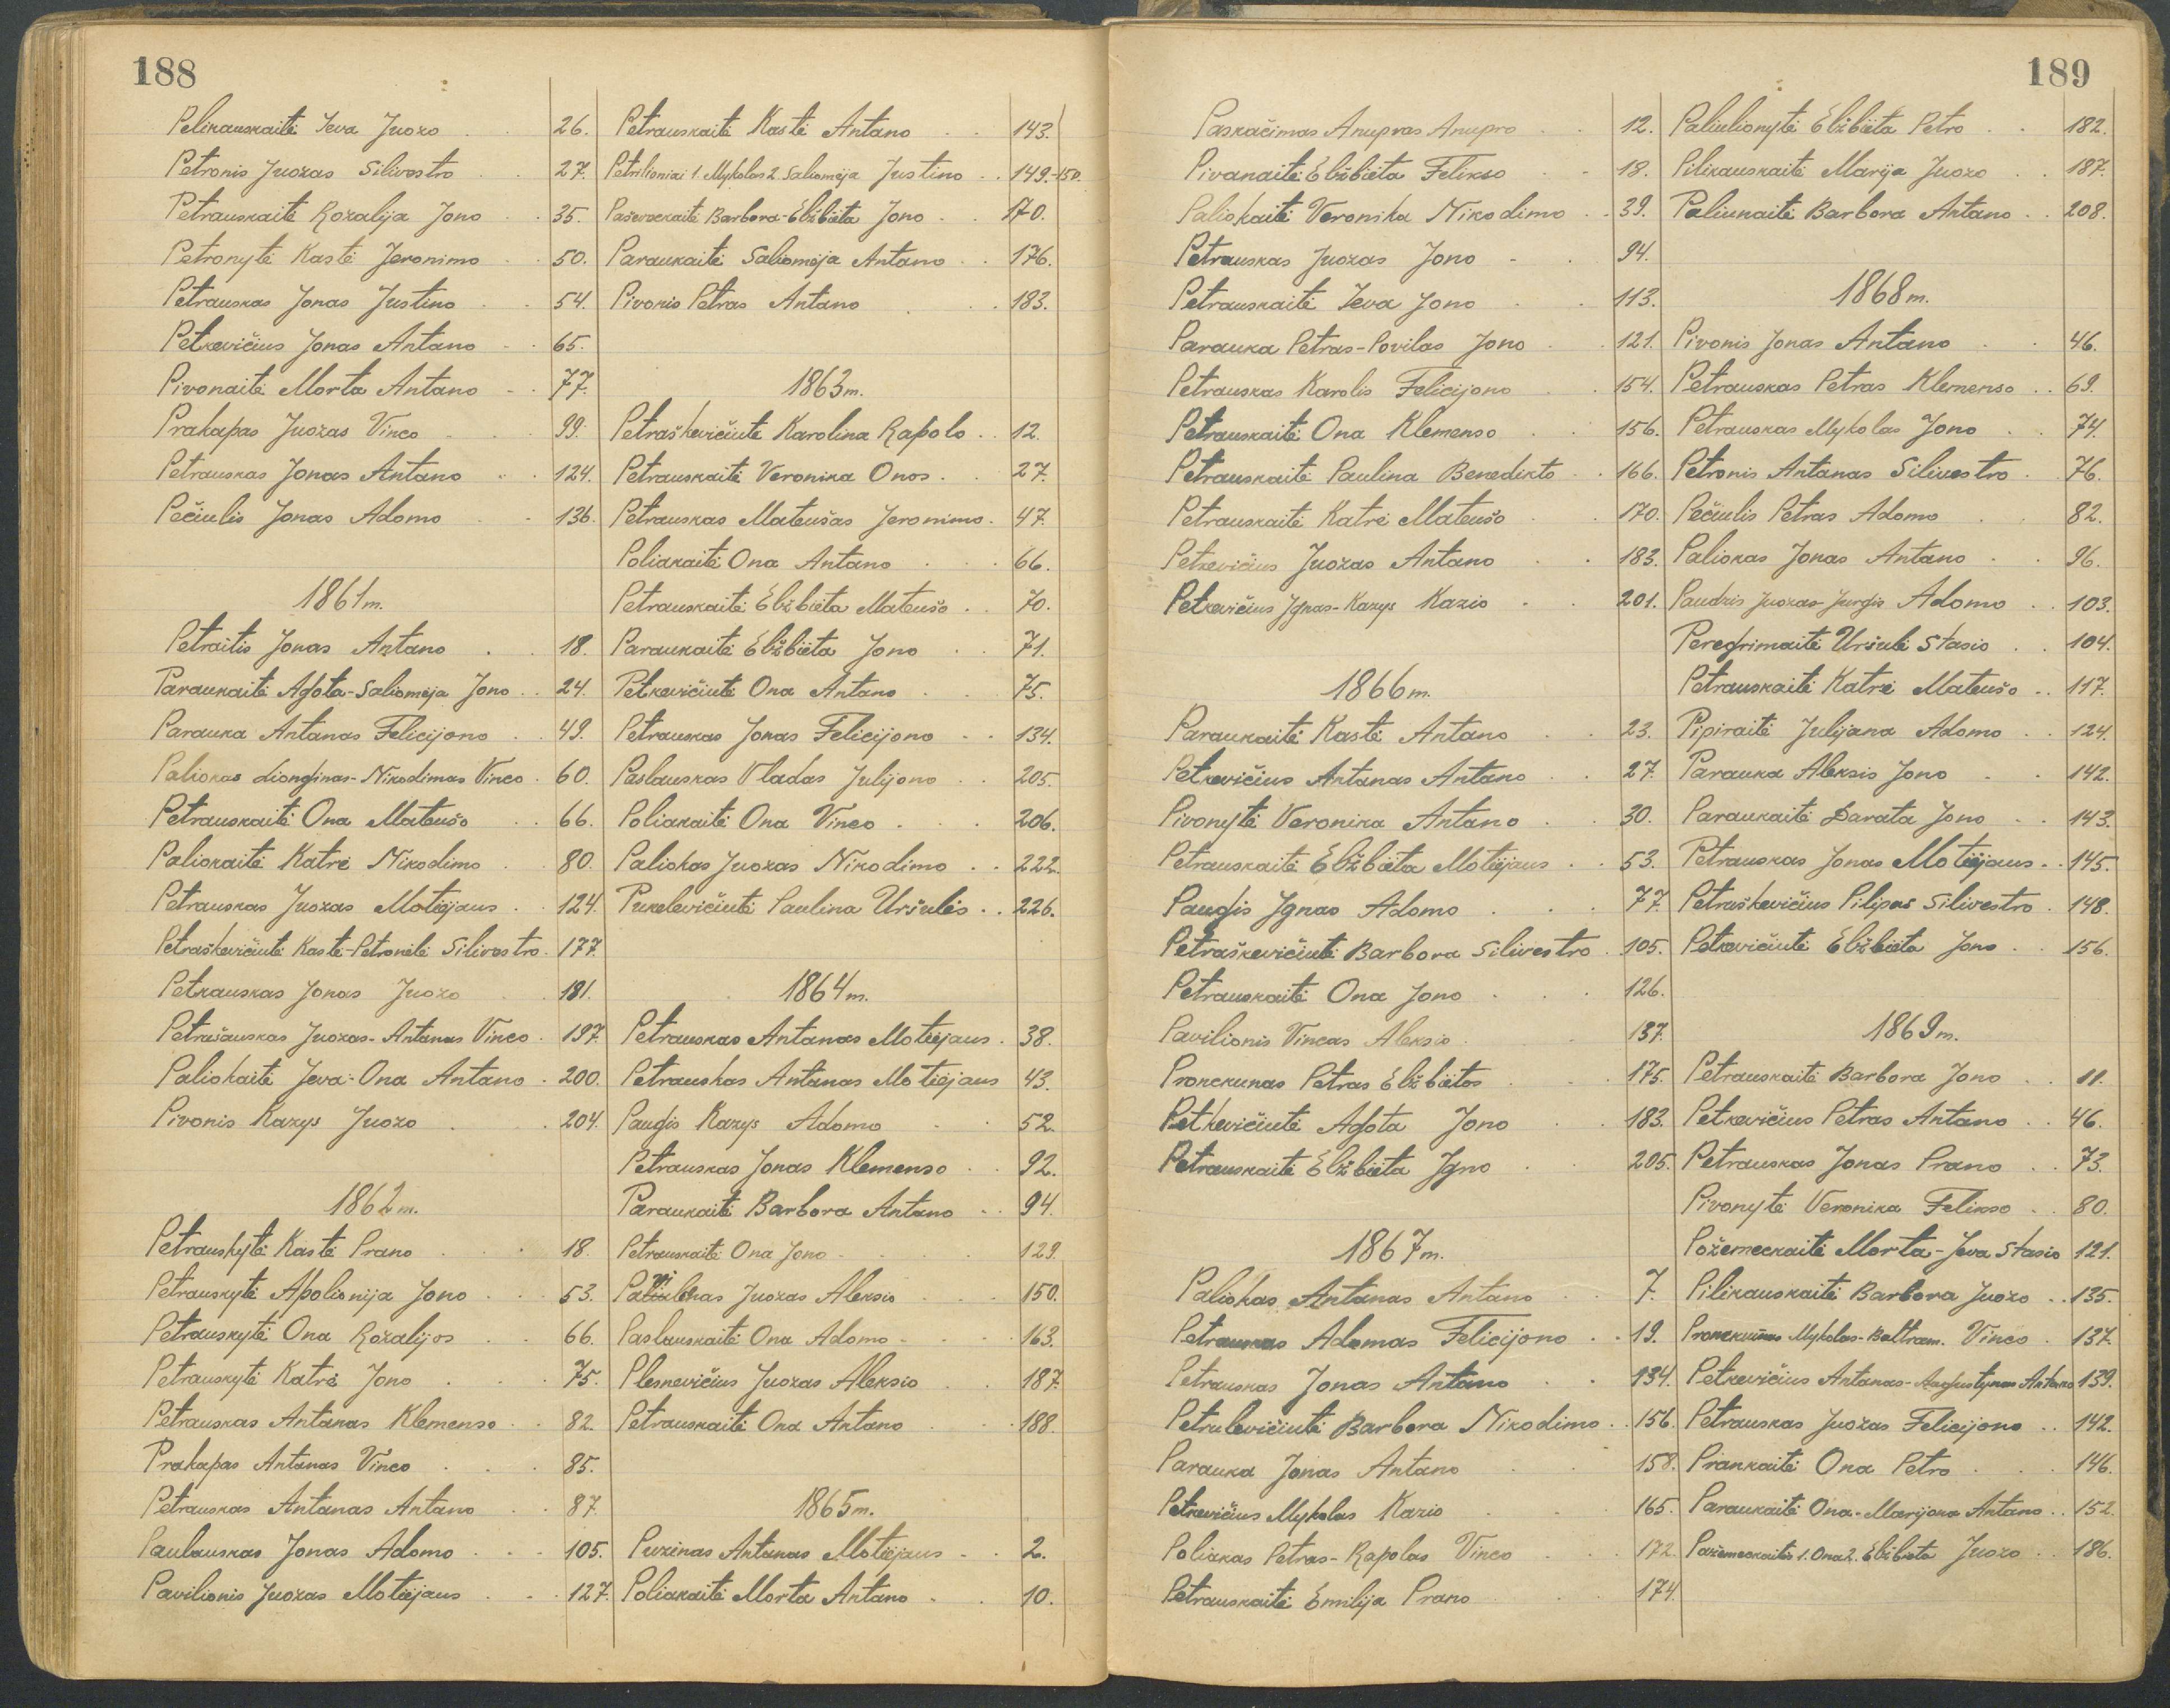 188
Pelikauskaitė Ieva Juozo 26.
Petronis Juozas Silivestro 27.
Petrauskaitė Rozalija Jono 35.
Petronytė Kastė Jeronimo 50.
Petrauskas Jonas Justino 54.
Petkevičius Jonas Antano 65.
Pivonaitė Morta Antano 77.
Prakapas Juozas Vinco 99.
Petrauskas Jonas Antano 124.
Pečiulis Jonas Adomo 136.
1861 m.
Petraitis Jonas Antano 18.
Paraukaitė Agota-Saliomėja Jono 24.
Parauka Antanas Felicijono 49.
Paliokas Lionginas-Nikodimas Vinco 60.
Petrauskaitė Ona Mateušo 66.
Paliokaitė Katrė Nikodimo 80.
Petrauskas Juozas Motiejaus 124.
Petraškevičiutė Kastė-Petronėlė Silivestro 177.
Petkauskas Jonas Juozo 181.
Petrašauskas Juozas-Antanas Vinco 197.
Paliokaitė Jeva-Ona Antano 200.
Pivonis Kazys Juozo 204.
1862 m.
Petrauskytė Kastė Prano 18.
Petrauskytė Apolionija Jono 53.
Petrauskytė Ona Rozalijos 66.
Petrauskytė Katrė Jono 75.
Petrauskas Antanas Klemenso 82.
Prakapas Antanas Vinco 85.
Petrauskas Antanas Antano 87.
Paulauskas Jonas Adomo 105.
Pavilionis Juozas Motiejaus 127.
Petrauskaitė Kastė Antano 143.
Petrilioniai 1. Mykolas 2. Saliomėja Justino 149.-150.
Paševeckaitė Barbora-Elžbieta Jono 170.
Paraukaitė Saliomėja Antano 176.
Pivonis Petras Antano 183.
1863 m.
Petraškevičiutė Karolina Rapolo 12.
Petrauskaitė Veronika Onos 27.
Petrauskas Mateušas Jeronimo 47.
Poliakaitė Ona Antano 66.
Petrauskaitė Elžbieta Mateušo 70.
Paraukaitė Elžbieta Jono 71.
Petkevičiutė Ona Antano 75.
Petrauskas Jonas Felicijono 134.
Paslauskas Vladas Julijono 205.
Poliakaitė Ona Vinco 206.
Paliokas Juozas Nikodimo 222.
Pukelevičiutė Paulina Uršulės 226.
1864 m.
Petrauskas Antanas Motiejaus 38.
Petrauskas Antanas Motiejaus 43.
Paugis Kazys Adomo 52.
Petrauskas Jonas Klemenso 92.
Paraukaitė Barbora Antano 94.
Petrauskaitė Ona Jono 129.
Juozas Aleksio 150.
Paslauskaitė Ona Adomo 163.
Plesnevičius Juozas Aleksio 187.
Petrauskaitė Ona Antano 188.
1865 m.
Puzinas Antanas Motiejaus 2.
Poliakaitė Morta Antano 10.
189
Paskačimas Anupras Anupro 12.
Pivanaitė Elžbieta Felikso 18.
Paliokaitė Veronika Nikodimo 39.
Petrauskas Juozas Jono 94.
Petrauskaitė Ieva Jono 113.
Parauka Petras-Povilas Jono 121.
Petrauskas Karolis Felicijono 154.
Petrauskaitė Ona Klemenso 156.
Petrauskaitė Paulina Benedikto 166.
Petrauskaitė Katrė Mateušo 170.
Petkevičius Juozas Antano 183.
Petkevičius Ignas-Kazys Kazio 201.
1866 m.
Paraukaitė Kastė Antano 23.
Petkevičius Antanas Antano 27.
Pivonytė Veronika Antano 30.
Petrauskaitė Elžbieta Motiejaus 53.
Paugis Ignas Adomo 77.
Petraškevičiutė Barbora Silivestro 105.
Petrauskaitė Ona Jono 126.
Pavilionis Vincas Aleksio 137.
Pronckunas Petras Elžbietos 175.
Petkevičiutė Agota Jono 183.
Petrauskaitė Elžbieta Igno 205.
1867 m.
Paliokas Antanas Antano 7.
Petrauskas Adomas Felicijono 19.
Petrauskas Jonas Antano 134.
Petrulevičiutė Barbora Nikodimo 156.
Parauka Jonas Antano 158.
Petkevičius Mykolas Kazio 165.
Poliakas Petras-Rapolas Vinco 172.
Petrauskaitė Emilija Prano 174.
Paliulionytė Elžbieta Petro 182.
Pilikauskaitė Marija Juozo 187.
Paliukaitė Barbora Antano 208.
1868 m.
Pivonis Jonas Antano 46.
Petrauskas Petras Klemenso 69.
Petrauskas Mykolas Jono 74.
Petronis Antanas Silivestro 76.
Pečiulis Petras Adomo 82.
Paliokas Jonas Antano 96.
Paudzis Juozas-Jurgis Adomo 103.
Peregrimaitė Uršulė Stasio 104.
Petrauskaitė Katrė Mateušo 117.
Pipiraitė Julijana Adomo 124.
Parauka Aleksis Jono 142.
Paraukaitė Darata Jono 143.
Petrauskas Jonas Motiejaus 145.
Petraškevičius Pilipas Silivestro 148.
Petkevičiutė Elžbieta Jono 156.
1869 m.
Petrauskaitė Barbora Jono 11.
Petkevičius Petras Antano 46.
Petrauskas Jonas Prano 73.
Pivonytė Veronika Felikso 80.
Požemeckaitė Morta-Jeva Stasio 121.
Pilikauskaitė Barbora Juozo 135.
Pronckunas Mykolas-Baltram. Vinco 137.
Petkevičius Antanas-Augustynas Antano 139.
Petrauskas Juozas Felicijono 142.
Prankaitė Ona Petro 146.
Paraukaitė Ona-Marijona Antano 152.
Pažemeckaitės 1. Ona 2. Elžbieta Juozo 186.